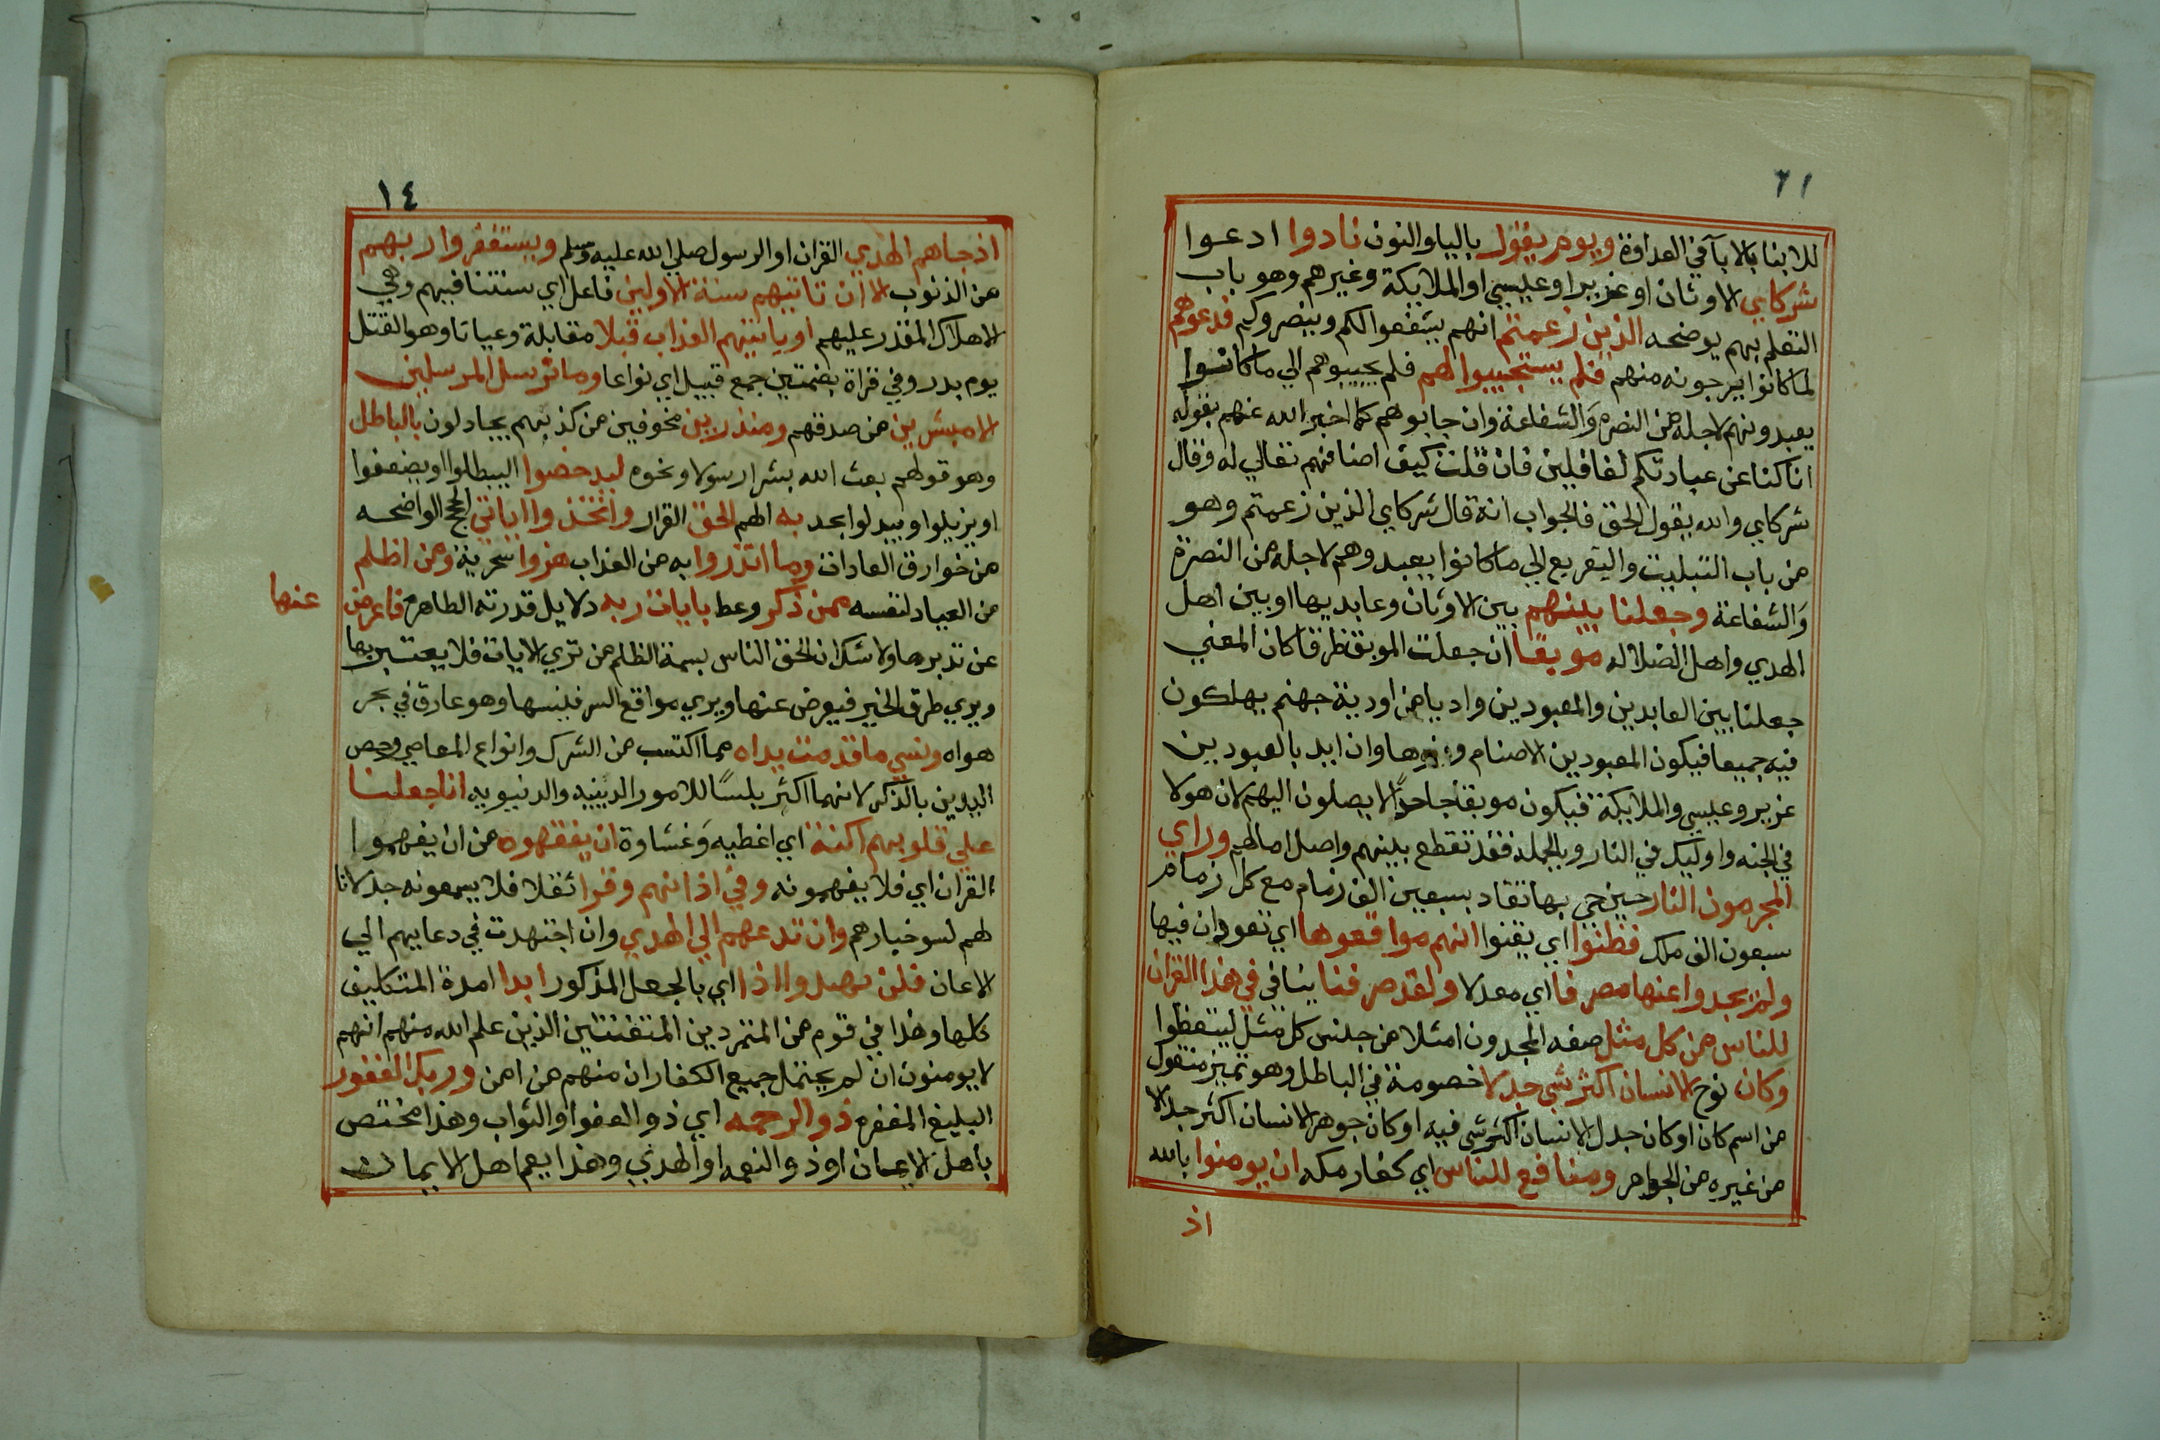 ٢١
للابنا بالابآ في العداوة ويوم يقول بالياو النون نادوا ادعوا
شركاي الاوثان او عزيرا وعيسي او الملايكة وغيرهم وهو باب
التعلم بهم يوضحه الذين زعمتم انهم يشفعوا لكم وينصروكم فدعوهم
لما كانوا يرجونه منهم فلم يستجيبوا لهم فلم يجيبوهم الي ما كانوا
يعبدونهم لاجله من النصره والشفاعة وان جابوهم كما اخبر الله عنهم بقوله
انا كنا عن عبادتكم لغافلين فان قلت كيف اضافهم تعالي له وقال
شركاي والله يقول الحق فالجواب انه قال شركاي الذين زعمتم وهو
من باب التبليت والتقريع الي ما كانوا يعبدوهم لاجله من النصرة
والشفاعة وجعلنا بينهم بين الاوثان وعابديها او بين اهل
الهدي واهل الضلاله موبقا ان جعلت الموبق ظرفا كان المعني
جعلنا بين العابدين والمعبودين واديا من اودية جهنم يهلكون
فيه جميعا فيكون المعبودين الاصنام وان اريد بالعبودين
عزير وعيسي والملايكة فيكون موبقا حاجزا لا يصلون اليهم لان هولا
في الجنه واوليك في النار وبالجمله فقد تقطع بينهم واصل امالهم وراي
المجرمون النار حين جي بها تقاد بسبعين الف زمام مع كل زمام
سبعون الف ملك فظنوا اي يقنوا انهم مواقعوها اي تعوان فيها
ولم يجدوا عنها مصرفا اي معدلا ولقد صرفنا بينا في في هذا القران
للناس من كل مثل صفه لمجدون امثلا من جلنس كل مثل ليتعظوا
وكان نوح الانسان اكثر شي جدلا خصومة في الباطل وهو تميز منقول
من اسم كان او كان جدل الانسان اكثر شي فيه او كان جوهر الانسان اكثر جدلا
من غيره من الجواهر ومنا فع للناس اي كفار مكه ان يومنوا بالله
اذ
١٤
اذ جاهم الهدي القران او الرسول صلي الله عليه وسلم ويستغفروا ربهم
من الذنوب الا ان تاتيهم سنة الاولين فاعل اي سنتنا فيهم وهي
الاهلاك المقدر عليهم او ياتيهم العذاب قبلا مقابلة وعيانا وهو القتل
يوم بدر وفي قراة بضمتين جمع قبيل اي نواعا وما نرسل المرسلين
الا مبشرين من صدقهم ومنذرين مخوفين من كذبهم يجادلون بالباطل
وهو قولهم بعث الله بشرا رسولا ونحوه ليدحضوا ليبطلوا او يضعفوا
او يزيلوا ويبدلوا بجد به الهم الحق القرار واتخذوا اياتي الحج الواضحه
من خوارق العادات وما انذروا به من العذاب هزوا سخرية ومن اظلم
من العباد لنفسه ممن ذكر وعظ بايات ربه دلايل قدرته الطاهره فاعرض
عنها
عن تدبرها ولا شك ان الحق الناس بسمة الظلم من تري الايات فلا يعتبر بها
ويري طرق الخير فيعرض عنها ويري مواقع السر فلنسها وهو عارق في بحر
هواه ونسي ما قدمت يداه مما اكتسب من الشرك وانواع المعاصي وخص
اليدين بالذكر لانهما اكثر يلبسا للامور الدينيه والدنيويه انا جعلنا
علي قلوبهم اكنة اي اغطيه وغشاوة ان يفقهوه من ان يفهموا
القران اي فلا يفهمونه وفي اذانهم وقرا ثقلا فلا يسمعونه جدلانا
لهم لسو خيارهم وان تدعهم الي الهدي وان اجتهدت في دعايهم الي
الاعان فلن يهتدوا اذا اي بالجعل المذكور ابدا امدة التكليف
كلها وهذا في قوم من المتمردين المتفنتين الذين علم الله منهم انهم
لا يومنون ان لم يحتمل جميع الكفار ان منهم من امن وربك الغفور
البليغ المغفره ذو الرحمه اي ذو العفو او الثواب وهذا مختص
باهل الايمان او ذو النعمه او الهدي وهذا يعم اهل الايمان